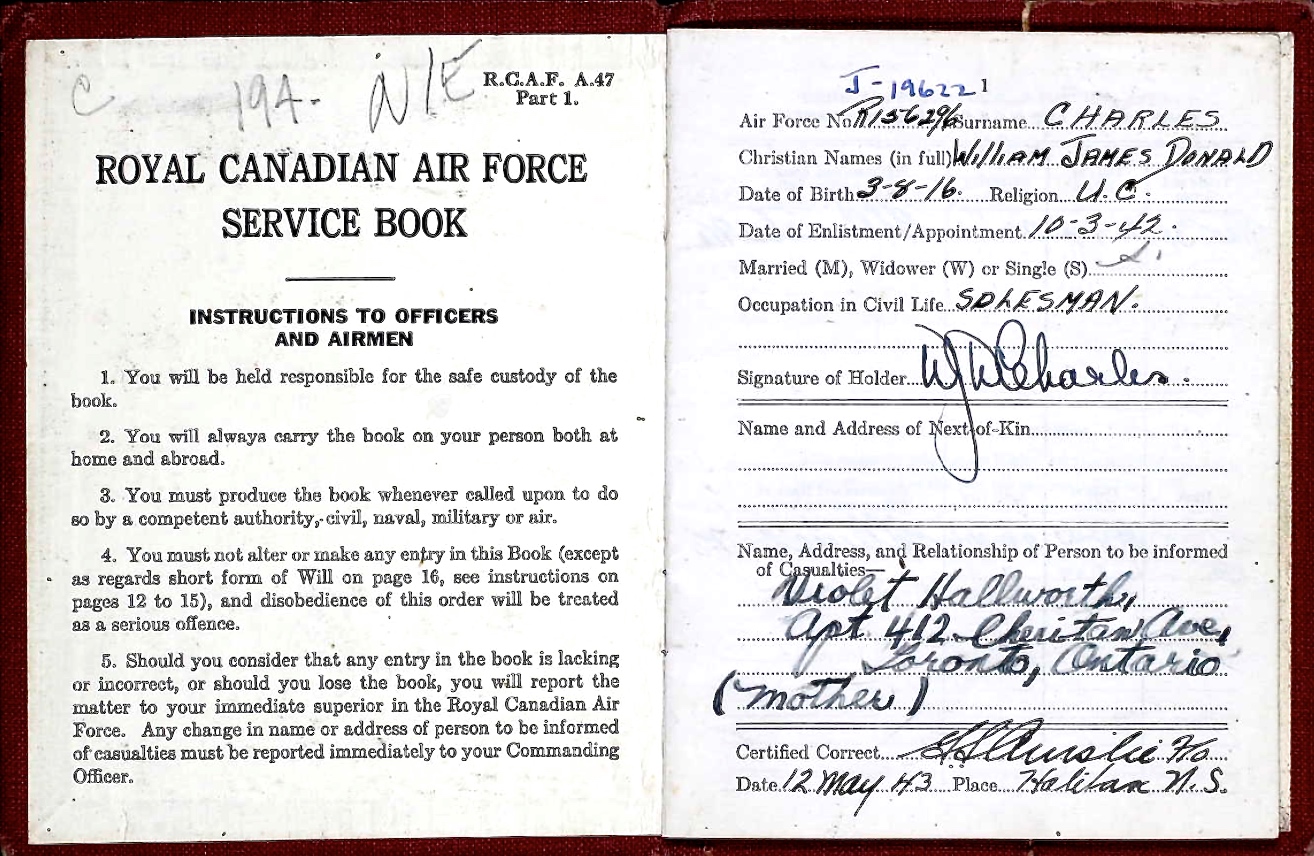 C 194. N/E
R.C.A.F. A.47
Part 1.
ROYAL CANADIAN AIR FORCE
SERVICE BOOK
INSTRUCTIONS TO OFFICERS
AND AIRMEN
1. You will be held responsible for the safe custody of the
book.
2. You will always carry the book on your person both at
home and abroad.
3. You must produce the book whenever called upon to do
so by a competent authority, civil, naval, military or air.
4. You must not alter or make any entry in this Book (except
as regards short form of Will on page 16, see instructions on
pages 12 to 15), and disobedience of this order will be treated
as a serious offence.
5. Should you consider that any entry in the book is lacking
or incorrect, or should you lose the book, you will report the
matter to your immediate superior in the Royal Canadian Air
Force. Any change in name or address of person to be informed
of casualties must be reported immediately to your Commanding
Officer.
J-19622 1
Air Force No. R156296 Surname CHARLES
Christian Names (in full) William JAMES DONALD
Date of Birth 3-8-16. Religion U.C.
Date of Enlistment/Appointment 10-3-42.
Married (M), Widower (W) or Single (S) S.
Occupation in Civil Life SOLESMAN.
Signature of Holder WJDCharles.
Name and Address of Next-of-Kin
Name, Address, and Relationship of Person to be informed
of Casualties—
Violet Hallworth,
Apt 412 Cheritan Ave,
Toronto, Ontario
(mother)
Certified Correct F/O
Date 12 May 43 Place Halifax N.S.